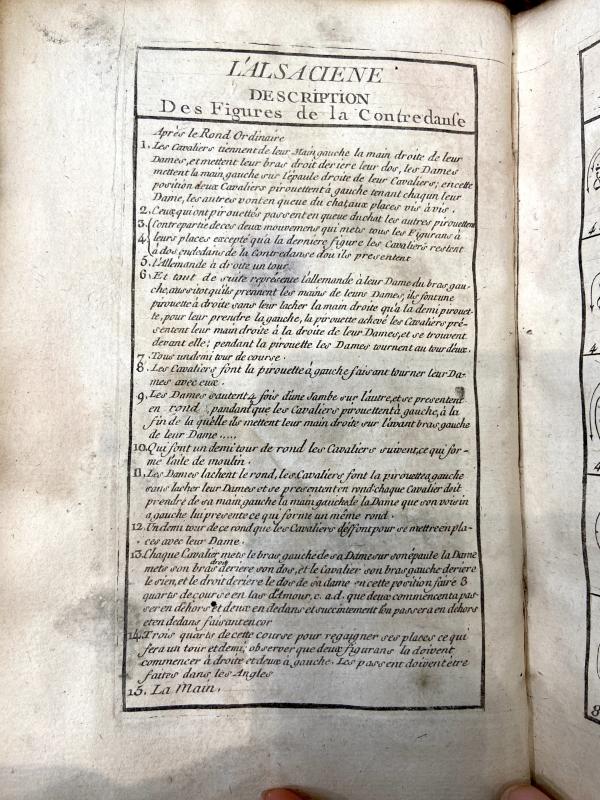 L'ALSACIENE
DESCRIPTION
Des Figures de la Contredanse
Après le Rond Ordinaire
1. Les Cavaliers tiennent de leur Main gauche la main droite de leur
Dames, et mettent leur bras droit deriere leur dos, les Dames
mettent la main gauche sur l'épaule droite de leur Cavaliers; en cette
position deux Cavaliers pirouettent à gauche tenant chaqun leur
Dame, les autres vont en queue du chat, aux places vis à vis.
2. Ceux qui ont pirouettés passent en queue du chat les autres pirouettent
3. Contrepartie de ces deux mouvemens qui mets tous les Figurans à
4. leurs places excepté qu'a la derniere figure les Cavaliers restent
à dos en dedans de la Contredanse d'ou ils presentent
5. l'Allemande à droite un tour.
6. Et tout de suite représente l'allemande à leur Dame du bras gau-
che, aussitot qu'ils prennent les mains de leurs Dames, ils font une
pirouette à droite sans leur lacher la main droite qu'a la demi pirouet-
te, pour leur prendre la gauche, la pirouette achevé les Cavaliers pré-
sentent leur main droite à la droite de leur Dames, et se trouvent
devant elle; pendant la pirouette les Dames tournent au tour d'eux.
7. Tous un demi tour de course.
8. Les Cavaliers font la pirouette à gauche faisant tourner leur Da-
mes avec eux.
9. Les Dames sautent 4 fois d'une Jambe sur l'autre, et se presentent
en rond, pandant que les Cavaliers pirouettent à gauche, à la
fin de la quèlle ils mettent leur main droite sur l'avant bras gauche
de leur Dame.....
10. Qui font un demi tour de rond les Cavaliers suivent, ce qui for-
me l'aile de moulin.
11. Les Dames lachent le rond, les Cavaliers font la pirouette a gauche
sans lacher leur Dames et se presentent en rond: chaque Cavalier doit
prendre de sa main gauche la main gauche de la Dame que son voisin
a gauche lui presente ce qui forme un même rond.
12. Un demi tour de ce rond que les Cavaliers déffont pour se mettre en pla-
ces avec leur Dame.
13. Chaque Cavalier mets le bras gauche de sa Dame sur son épaule la Dame
mets son bras droit deriere son dos, et le Cavalier son bras gauche deriere
le sien, et le droit deriere le dos de sa dame en cette position faire 3
quarts de course en las d'Amour, c. a. d. que deux commencent a pas-
ser en dehors et deux en dedans et succintement l'on passera en dehors
et en dedans faisant encor
14. Trois quarts de cette course pour regaigner ses places ce qui
fera un tour et demi; observer que deux figurans la doivent
commencer à droite et deux à gauche. Les passent doivent étre
faites dans les Angles
15. La Main.
4
4
4
8